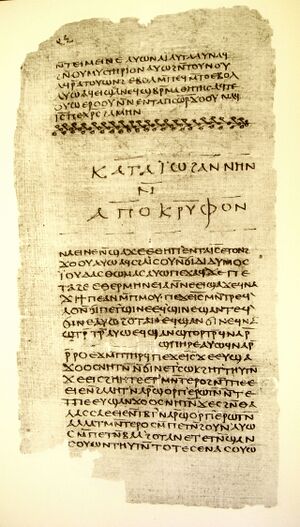 ⲛ̄ⲧⲉⲓⲙⲉⲓⲛⲉ ⲁⲩⲱ ⲛⲁⲓ ⲁⲩⲧⲁⲁⲩ ⲛⲁϥ
ϩⲛ̄ⲛⲟⲩⲙⲩⲥⲧⲏⲣⲓⲟⲛ ⲁⲩⲱ ϩⲛ̄ⲧⲟⲩⲛⲟⲩ
ⲁϥⲣ̄ⲁⲧⲟⲩⲱⲛϩ ⲉⲃⲟⲗ ⲙ̄ⲡⲉϥⲙ̄ⲧⲟ ⲉⲃⲟⲗ
ⲁⲩⲱ ⲁϥⲉⲓ ϣⲁⲛⲉϥϣⲃⲣ̄ⲙⲁⲑⲏⲧⲏⲥ ⲁϥⲧⲉ
ⲟⲩⲱ ⲉⲣⲟⲟⲩ ⲛ̄ⲛⲉⲛⲧⲁⲡⲥⲱⲣ ϫⲟⲟⲩ ⲛⲁϥ
ⲓ̄ⲥ̄ ⲡⲉⲭⲣ̄ⲥ̄ ϩⲁⲙⲏⲛ
ⲕⲁⲧⲁ ⲓⲱϩⲁⲛⲛⲏⲛ
ⲛ̄
ⲁⲡⲟⲕⲣⲩⲫⲟⲛ
ⲛⲁⲉⲓ ⲛⲉ ⲛ̄ϣⲁϫⲉ ⲉⲑⲏⲡ ⲉⲛⲧⲁⲓ̄ⲥ̄ ⲉⲧⲟⲛϩ
ϫⲟⲟⲩ ⲁⲩⲱ ⲁϥⲥϩⲁⲓ̈ⲥⲟⲩ ⲛ̄ϭⲓ ⲇⲓⲇⲩⲙⲟⲥ
ⲓ̈ⲟⲩⲇⲁⲥ ⲑⲱⲙⲁⲥ ⲁⲩⲱ ⲡⲉϫⲁϥ ϫⲉ ⲡⲉ
ⲧⲁϩⲉ ⲉⲑⲉⲣⲙⲏⲛⲉⲓⲁ ⲛ̄ⲛⲉⲉⲓϣⲁϫⲉ ϥⲛⲁ
ϫⲓ ϯⲡⲉ ⲁⲛ ⲙ̄ⲡⲙⲟⲩ ⲡⲉϫⲉ ⲓ̄ⲥ̄ ⲙⲛ̄ⲧⲣⲉϥ
ⲗⲟ ⲛ̄ϭⲓ ⲡⲉⲧϣⲓⲛⲉ ⲉϥϣⲓⲛⲉ ϣⲁⲛⲧⲉϥ
ϭⲓⲛⲉ ⲁⲩⲱ ϩⲟⲧⲁⲛ ⲉϥϣⲁⲛϭⲓⲛⲉ ϥⲛⲁ
ϣⲧⲣ̄ⲧⲣ̄ ⲁⲩⲱ ⲉϥϣⲁⲛϣⲧⲟⲣⲧⲣ̄ ϥⲛⲁⲣ̄
ϣⲡⲏⲣⲉ ⲁⲩⲱ ϥⲛⲁⲣ̄
ⲣ̄ⲣⲟ ⲉϫⲙ̄ ⲡⲧⲏⲣϥ ⲡⲉϫⲉ ⲓ̄ⲥ̄ ϫⲉ ⲉⲩϣⲁ
ϫⲟⲟⲥ ⲛⲏⲧⲛ̄ ⲛ̄ϭⲓ ⲛⲉⲧⲥⲱⲕ ϩⲏⲧ ⲑⲩⲧⲛ̄
ϫⲉ ⲉⲓⲥϩⲏⲏⲧⲉ ⲉⲧⲙⲛ̄ⲧⲉⲣⲟ ϩⲛ̄ ⲧⲡⲉ ⲉ
ⲉⲓⲉ ⲛ̄ϩⲁⲗⲏⲧ ⲛⲁⲣ̄ ϣⲟⲣⲡ ⲉⲣⲱⲧⲛ̄ ⲛ̄ⲧⲉ
ⲧⲡⲉ ⲉⲩϣⲁⲛϫⲟⲟⲥ ⲛⲏⲧⲛ̄ ϫⲉ ⲥϩⲛ̄ ⲑⲁ
ⲗⲁⲥⲥⲁ ⲉⲉⲓⲉ ⲛ̄ⲧⲃⲧ ⲛⲁⲣ̄ ϣⲟⲣⲡ ⲉⲣⲱⲧⲛ̄
ⲁⲗⲗⲁ ⲧⲙⲛ̄ⲧⲉⲣⲟ ⲥⲙ̄ⲡⲉⲧⲛ̄ϩⲟⲩⲛ ⲁⲩⲱ
ⲥⲙ̄ⲡⲉⲧⲛ̄ⲃⲁⲗ ϩⲟⲧⲁⲛ ⲉⲧⲉⲧⲛ̄ϣⲁⲛ
ⲥⲟⲩⲱⲛ ⲑⲩⲧⲛ̄ ⲧⲟⲧⲉ ⲥⲉⲛⲁⲥⲟⲩⲱ